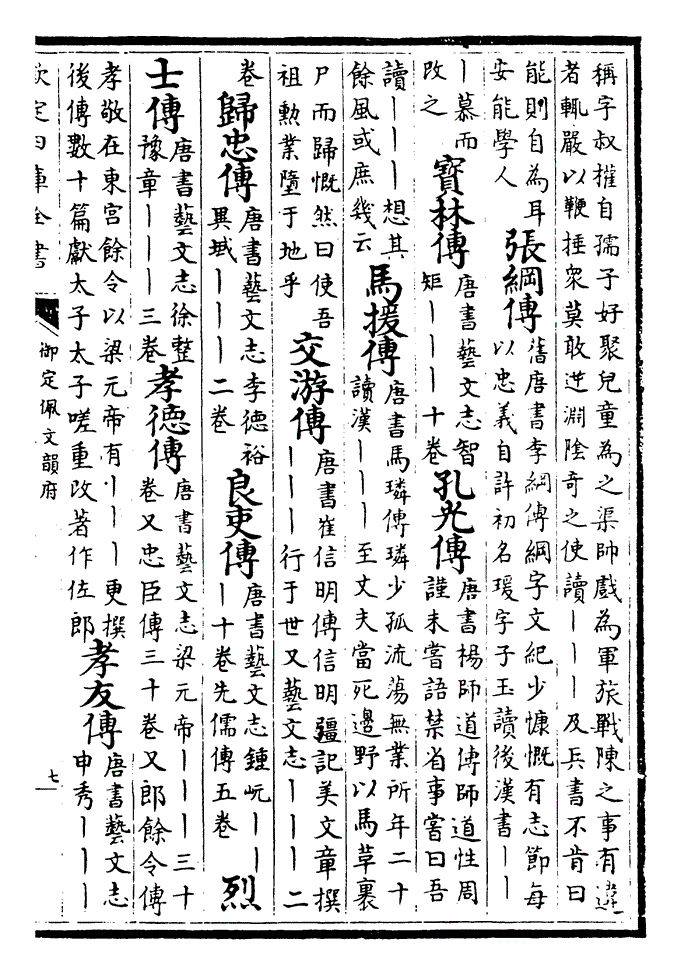 稱字叔權自孺子好聚兒童為之渠帥戲為軍旅戰陳之事有違
者輒嚴以鞭捶衆莫敢逆淵陰奇之使讀丨丨丨及兵書不肯曰
能則自為耳
安能學人
張綱傳
舊唐書李綱傳綱字文紀少慷慨有志節每
以忠義自許初名瑗字子玉讀後漢書丨丨
丨慕而
改之
寶林傳
唐書藝文志智
矩丨丨丨十卷
孔光傳
唐書楊師道傳師道性周
謹未嘗語禁省事嘗曰吾
讀丨丨丨想其
餘風或庶幾云
馬援傳
唐書馬璘傳璘少孤流蕩無業所年二十
讀漢丨丨丨至丈夫當死邊野以馬革裹
尸而歸慨然曰使吾
祖勲業墮于地乎
交游傳
唐書崔信明傳信明彊記美文章撰
丨丨丨行于世又藝文志丨丨丨二
卷
歸忠傳
唐書藝文志李德裕
異域丨丨丨二卷
良吏傳
唐書藝文志鍾岏丨丨
丨十卷先儒傳五卷
烈
士傳
唐書藝文志徐整
豫章丨丨丨三卷
孝德傳
唐書藝文志梁元帝丨丨丨三十
卷又忠臣傳三十卷又郎餘令傳
孝敬在東宮餘令以梁元帝有丨丨丨更撰
後傳數十篇獻太子太子嗟重改著作佐郎
孝友傳
唐書藝文志
申秀丨丨丨
欽定四庫全書
御定佩文韻府
七